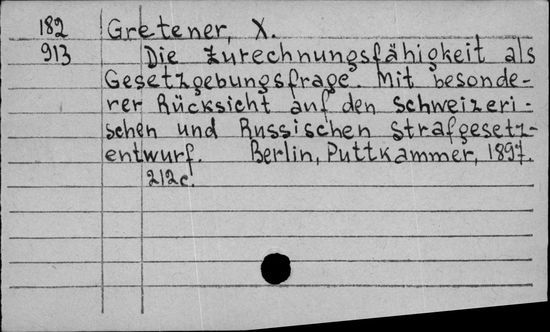 182 Gretener, X.
913 Die Zurechnungsfähigkeit als
Gesetzgebungsfrage. Mit besonde-
rer Rücksicht auf den schweizeri-
schen und Russischen Strafgesetz-
entwurf. Berlin, Puttkammer, 1897.
212c.